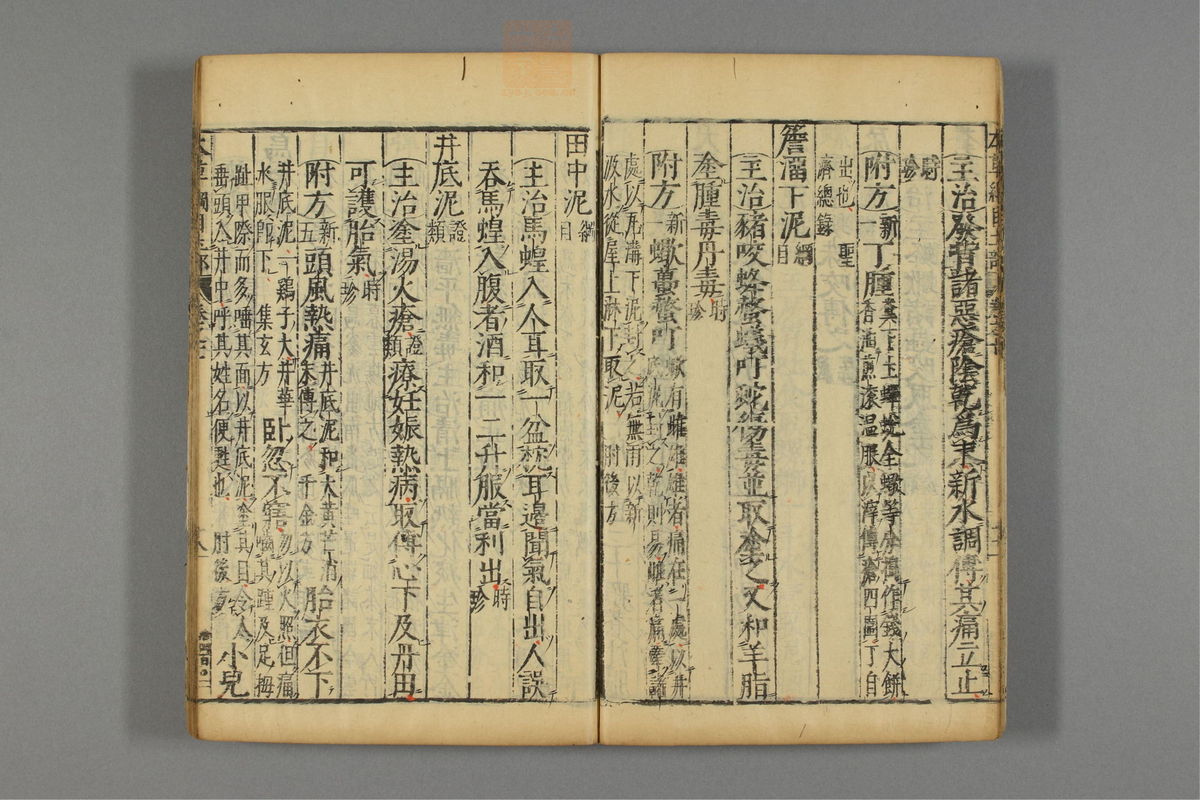 主治發背諸惡瘡陰乾爲末新水調傅其痛立止
時珍
附方新一丁腫糞下土蟬蛻全蠍等分擣作錢大餅
香油煎滾溫服以滓傅瘡四圍丁自
出也聖
濟總錄
簷溜下泥綱目
主治豬咬蜂螫蟻叮蛇傷毒並取塗之又和羊脂
塗腫毒丹毒時珍
附方新一蠍蠆螫叮蠍有雌雄雄者痛在一處以井
底泥封之乾則易雌者痛牽諸
處以瓦溝下泥封之若無雨以新
汲水從屋上淋下取泥肘後方
田中泥綱目
主治馬蝗入人耳取一盆枕耳邊聞氣自出人誤
吞馬蝗入腹者酒和一二升服當利出時珍
井底泥證類
主治塗湯火瘡證類療妊娠熱病取傅心下及丹田
可護胎氣時珍
附方新五頭風熱痛井底泥和大黃芒消末傅之千金方胎衣不下
井底泥一鷄子大井華
水服卽下集玄方臥忽不寤勿以火照但痛
囓其踵及足拇
趾甲際而多唾其面以井底泥塗其目令人
垂頭入井中呼其姓名便甦也肘後方小兒